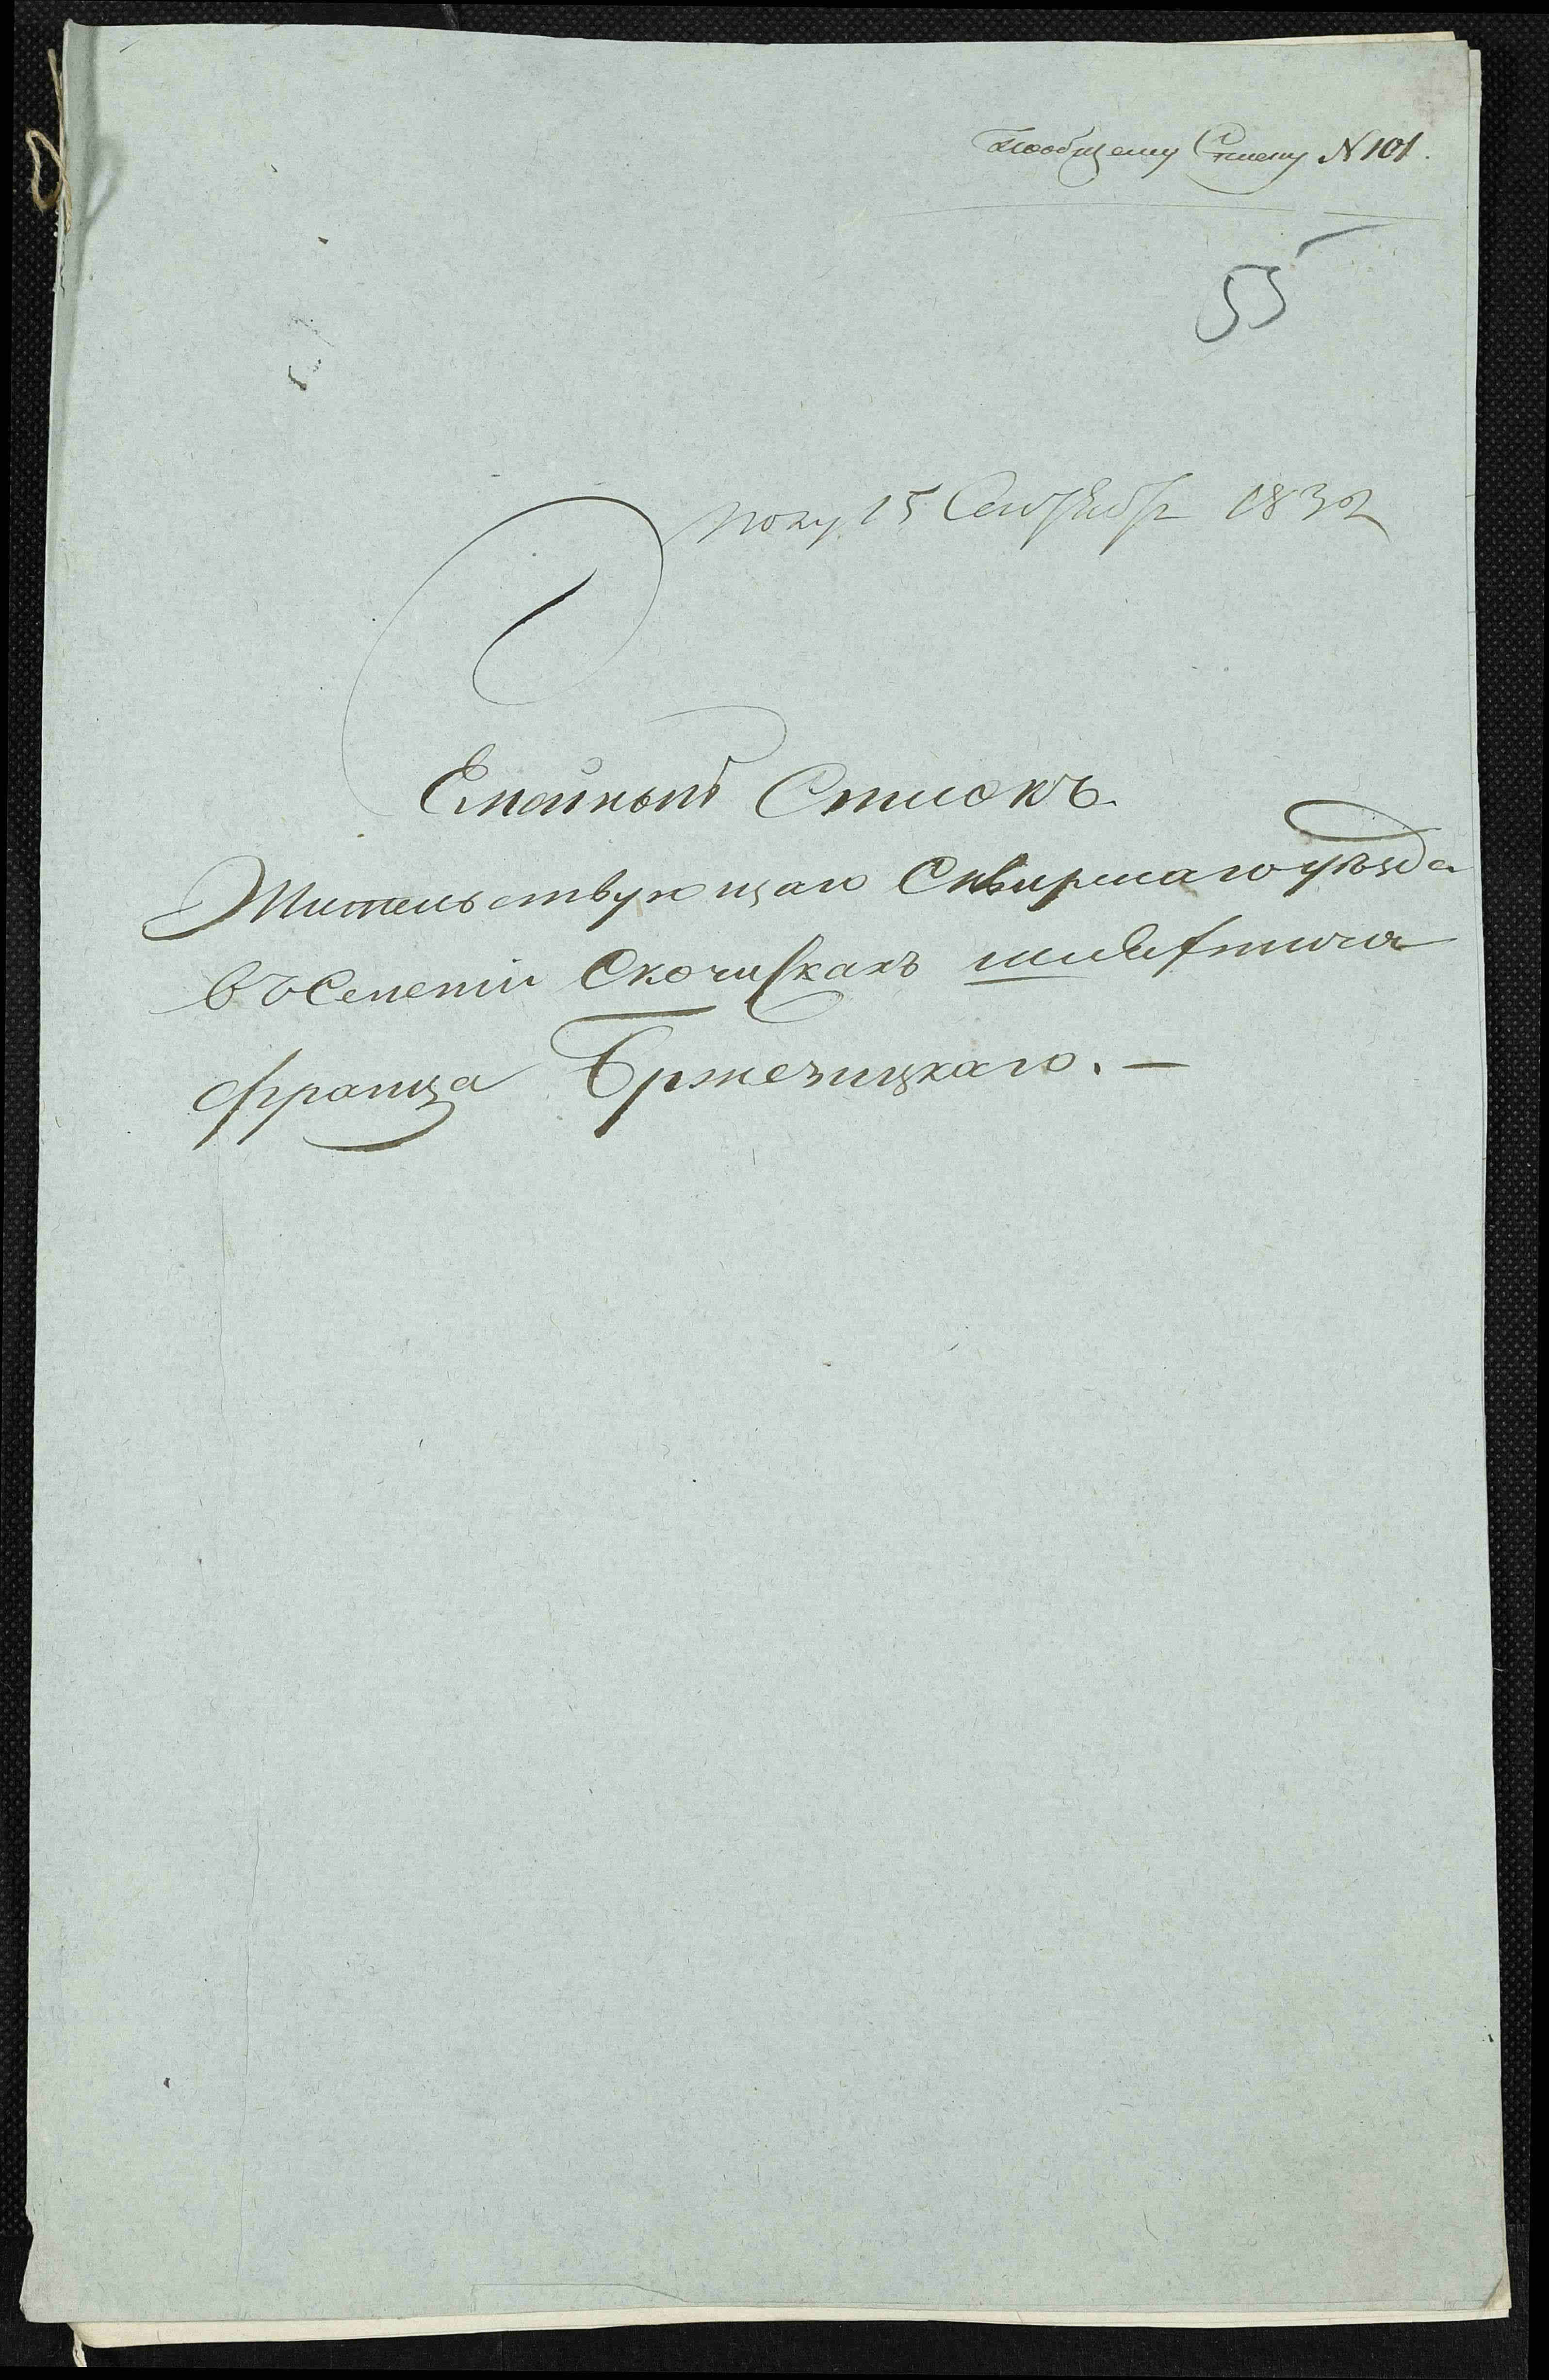 По общему Списку N 101.
55
полу. 15 Сентября 1832
Имянный Списокъ.
Жительствующаго Сквирскаго уѣзда
въ Селеніи Скочискахъ шляхтича
Франца Бржезицкаго. —